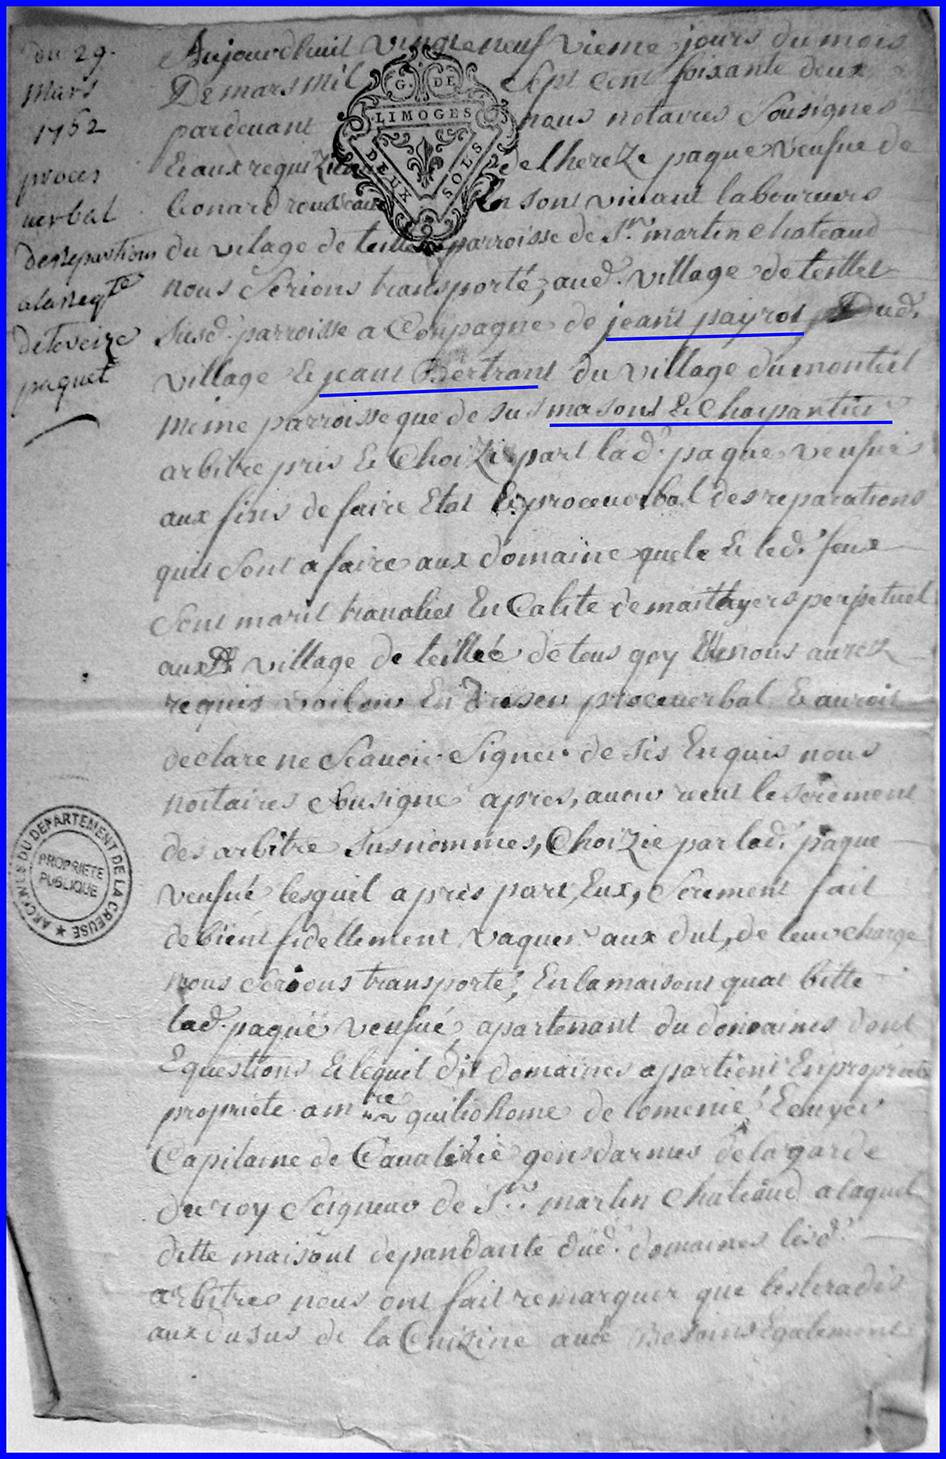 du 29.
mars
1762
proces
verbal
de reparations
a la reqte
de tereize
paquet
G. DE
LIMOGES
DEUX SOLS
Aujourdhuit vingt neuf vieme jours du mois
De mars mil sept cent soixante deux
pardevant nous notaires Sousignes
Et aux requizition de therezze paque veufue de
leonard rousseau en sont vivant laboureurs
du vilage de teillet parroisse de St. martin chateaud
nous Serions transporté, aud. village de teillet
susd. parroisse a Conpagne de jeant payrot Dud.
village Et jeant Bertrant du village du monteil
meme parroisse que de sus masont Et Charpantier
arbitre pris Et Choizie part lad. paque veufue
aux fins de faire Etat Et proceverbal des reparations
quit Sont a faire aux domaine quele Et led. feux
Sont marit travaliet En Calite de maittayers perpetuel
aux village de teillée de tous qoy Elle nous aurez
requis vouloir En Dreser proceverbal Et auroit
declare ne Scavoir Signer de sis Enquis nous
nottaires Sousigne apres, avoir reeut le serement
des arbitre susnommes, Choizie par lad. paque
veufué lesquil apres part, Eux, Serement fait
de bient fidellement vaquer aux dut, de leur charge
nous Serions transporté, En la maisont quat bitte
lad. paque veufué, apartenant du domaines dont
Equestions Et lequel dit domaines apartient En propriete
propriete a mre quiliohome de lomenie Ecuyer
Capitaine de Cavalerie gensdarmes de la garde
du roy Seigneur de St. martin chateaud a laquel
ditte maisont depandante dud. domaines lesd.
arbitres nous ont fait remarquer que les
aux dusus de la Cuizine avec Besoins Egalement
ARCHIVES DU DEPARTEMENT DE LA CREUSE
PROPRIETE
PUBLIQUE